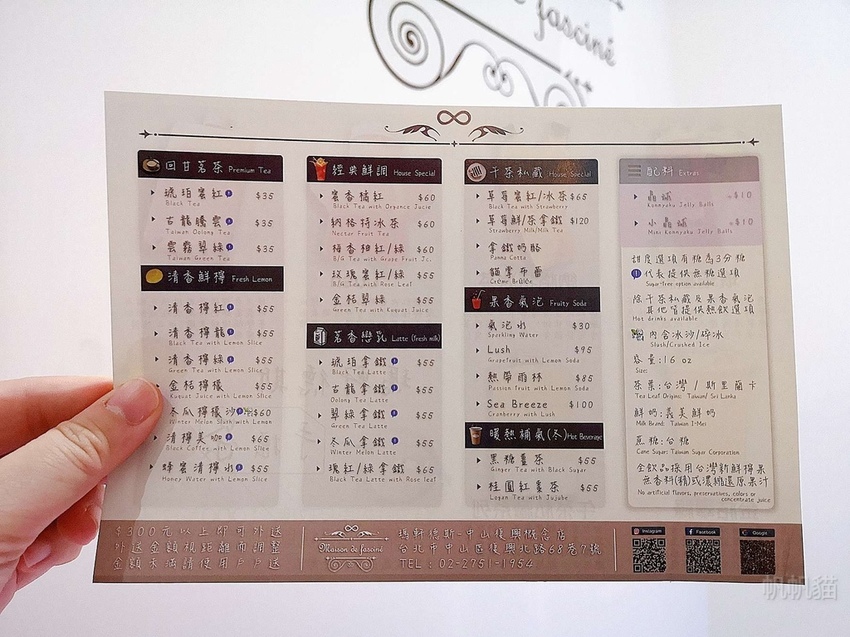 de fasciné
回甘茗茶 Premium Tea
琥珀蜜紅 $35
Black Tea
古龍騰雲 $35
Taiwan Oolong Tea
雲霧翠綠 $35
Taiwan Green Tea
清香鮮檸 Fresh Lemon
清香檸紅 $55
Black Tea with Lemon Slice
清香檸龍 $55
清香檸綠 $55
Green Tea with Lemon Slice
金桔檸檬 $55
Kuquat Juice with Lemon Slice
冬瓜檸檬沙 $60
Winter Melon Slush with Lemon
清檸美咖 $65
Black Coffee with Lemon Slice
蜂蜜清檸水 $55
Honey Water with Lemon Slice
經典鮮調 House Special
蜜香橘紅 $60
Black Tea with Organce Juice
納格特冰茶 $60
Nectar Fruit Tea
梅香柚紅/綠 $60
B/G Tea with Grape Fruit Jc.
玫瑰蜜紅/綠 $55
B/G Tea with Rose Leaf
金桔翠綠 $55
Green Tea with Kuquat Juice
茗香戀乳 Latte (fresh milk)
琥珀拿鐵 $55
Black Tea Latte
古龍拿鐵 $55
Oolong Tea Latte
翠綠拿鐵 $55
Green Tea Latte
冬瓜拿鐵 $55
Winter Melon Latte
瑰紅/綠拿鐵 $65
Black Tea Latte with Rose leaf
午茶私藏 House Special
草莓蜜紅/冰茶 $65
Black Tea with Strawberry
草莓鮮/茶拿鐵 $120
Strawberry Milk/Milk Tea
拿鐵奶酪
Panna Cotta
貓掌布蕾
Crème Brûlée
果香氣泡 Fruity Soda
氣泡水 $30
Sparkling Water
Lush $95
Grapefruit with Lemon Soda
熱帶雨林 $85
Passion Fruit with Lemon Soda
Sea Breeze $100
Cranberry with Lush
暖熱補氣(冬) Hot Beverage
黑糖薑茶 $55
Ginger Tea with Black Sugar
桂圓紅棗茶 $55
Logan Tea with Jujube
配料 Extras
晶球 +$10
Konnyaku Jelly Balls
小晶球 +$10
Mini Konnyaku Jelly Balls
甜度選項有糖為3分糖
代表提供無糖選項
Sugar-free option available
除午茶私藏及果香氣泡
其他皆提供熱飲選項
Hot drinks available
內含冰沙/碎冰
Slush/Crushed Ice
容量:16 oz
Size:
茶葉:台灣/斯里蘭卡
Tea Leaf Origins: Taiwan/ Sri Lanka
鮮奶:義美鮮奶
Milk Brand: Taiwan I-Mei
蔗糖:台糖
Cane Sugar: Taiwan Sugar Corporation
全飲品採用台灣新鮮檸果
無香料(精)或濃縮還原果汁
No artificial flavors, preservatives, colors or
concentrate juice
$300元以上即可外送
外送金額視距離而調整
金額未滿請使用FP送
Maison de fasciné
瑪軒德斯-中山復興概念店
台北市中山區復興北路68巷7號
TEL:02-2751-1954
Instagram
Facebook
Google
帆帆貓